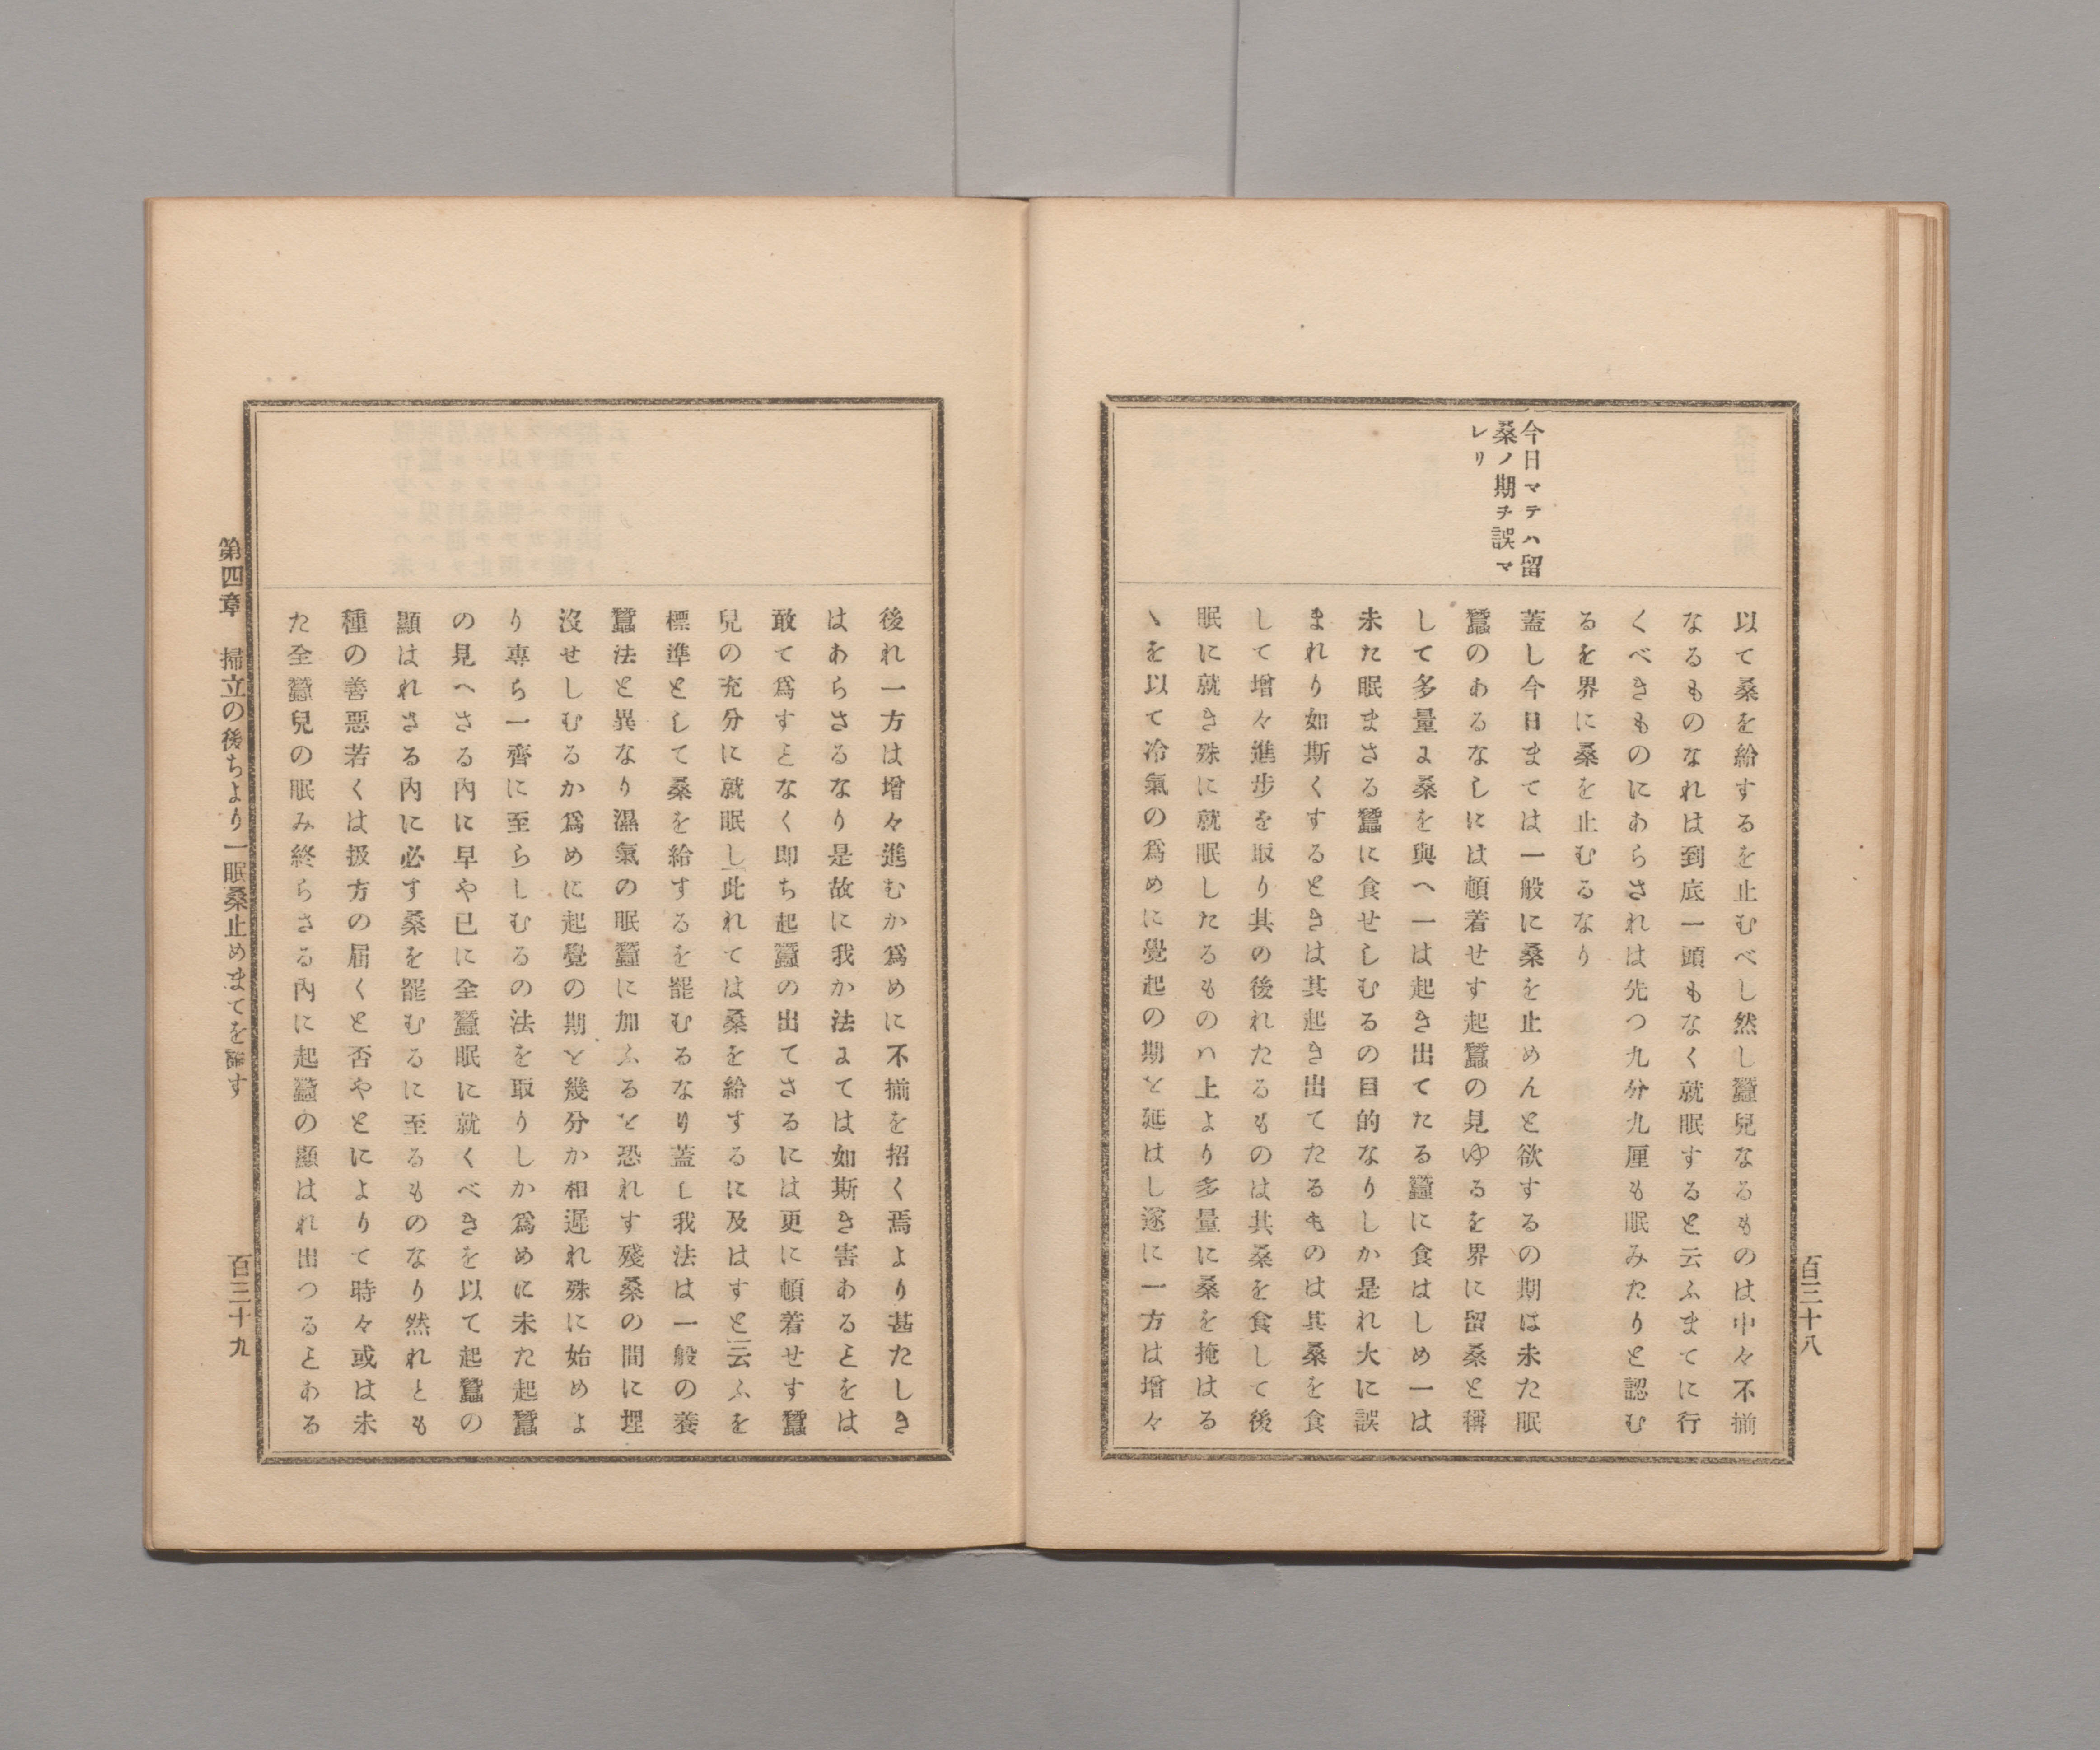 百三十八
今日マテハ留
桑ノ期ヲ誤マ
レリ
以て桑を給するを止むべし然し蠶兒なるものは中々不揃
なるものなれは到底一頭もなく就眠すると云ふまてに行
くべきものにあらされは先つ九分九厘も眠みたりと認む
るを界に桑を止むるなり
蓋し今日まては一般に桑を止めんと欲するの期は未た眠
蠶のあるなしには頓着せす起蠶の見ゆるを界に留桑と稱
して多量ま桑を與へ一は起き出てたる蠶に食はしめ一は
未た眠まさる蠶に食せしむるの目的なりしか是れ大に誤
まれり如斯くするときは其起き出てたるものは其桑を食
して增々進步を取り其の後れたるものは其桑を食して後
眠に就き殊に就眠したるものハ上より多量に桑を掩はる
ヽを以て冷氣の爲めに覺起の期を延はし遂に一方は增々
後れ一方は增々進むか爲めに不揃を招く焉より甚たしき
はあらさるなり是故に我か法まては如斯き害あるをは
敢て爲すとなく即ち起蠶の出てさるには更に頓着せす蠶
兒の充分に就眠し此れては桑を給するに及はすと云ふを
標準として桑を給するを罷むるなり蓋し我法は一般の養
蠶法と異なり濕氣の眠蠶に加ふるを恐れす殘桑の間に埋
沒せしむるか爲めに起覺の期を幾分か相遲れ殊に始めよ
り專ら一齊に至らしむるの法を取りしか爲めに未た起蠶
の見へさる內に早や已に全蠶眠に就くべきを以て起蠶の
顯はれさる內に必す桑を罷むるに至るものなり然れとも
種の善惡若くは扱方の届くと否やとによりて時々或は未
た全蠶兒の眠み終らさる內に起蠶の顯はれ出つるとある
第四章 掃立の後ちより一眠桑止めまてを論す
百三十九